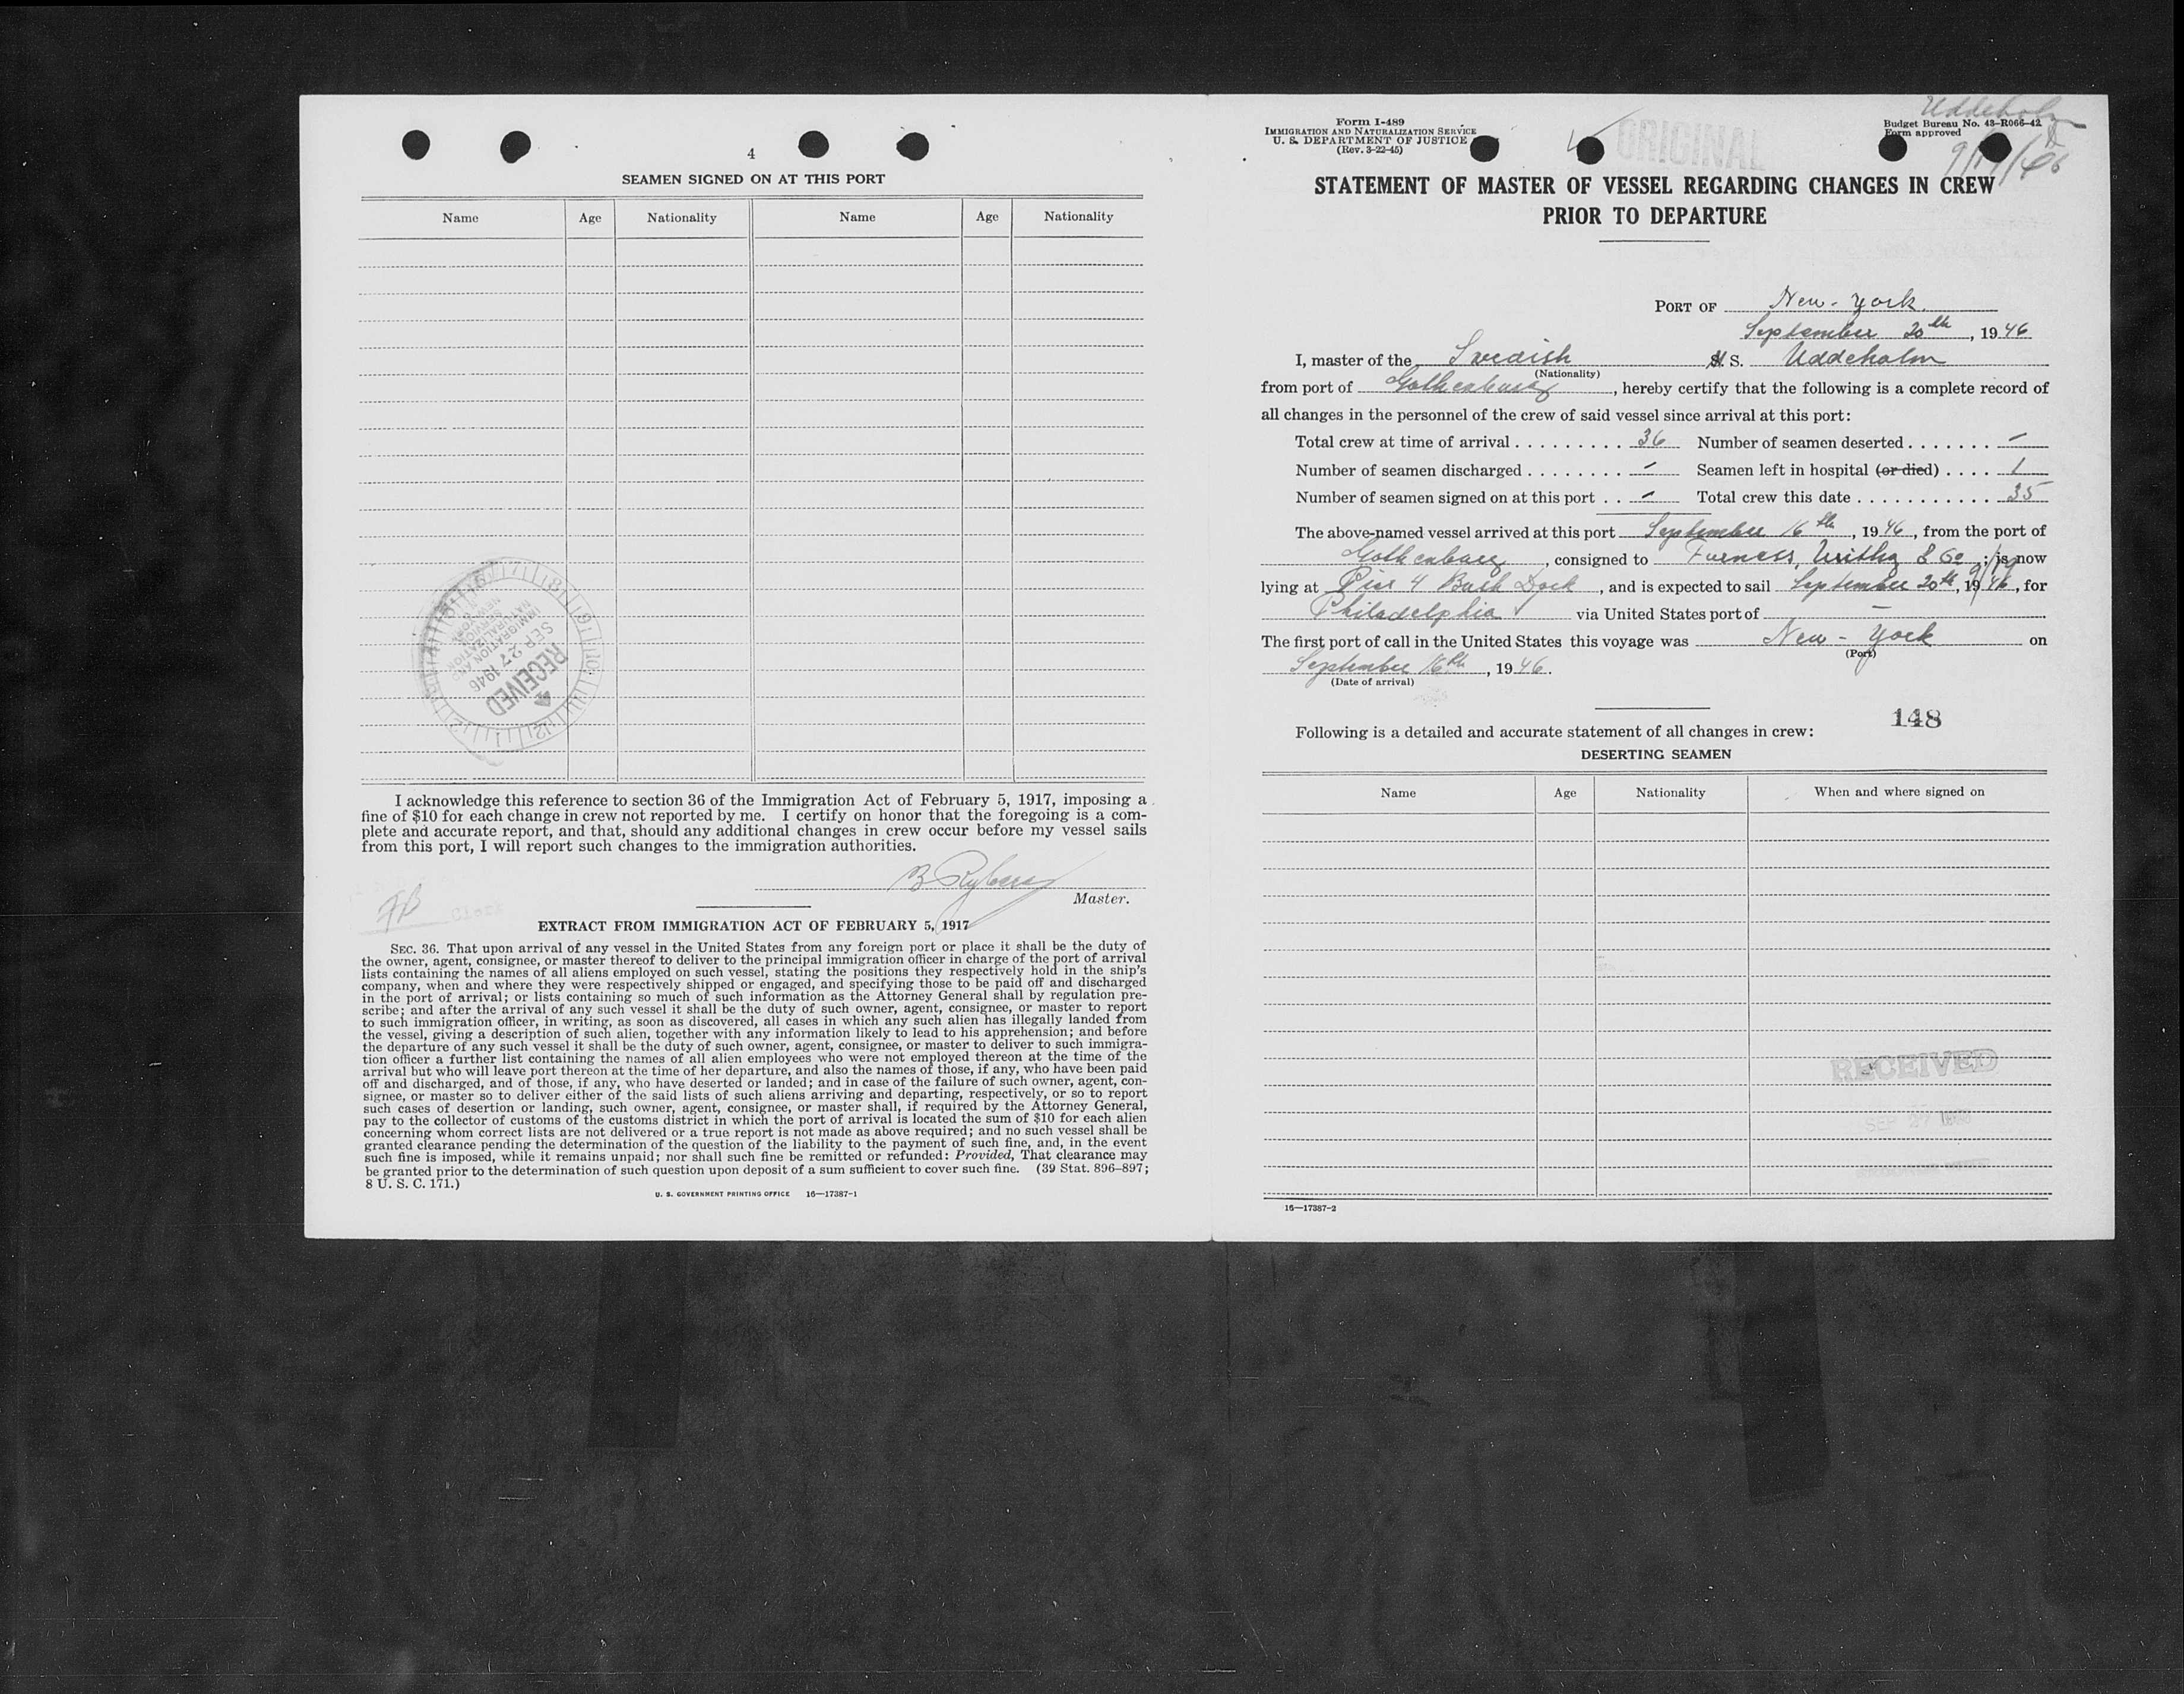 4
SEAMEN SIGNED ON AT THIS PORT
Name Age Nationality Name Age Nationality
RECEIVED
SEP 27 1946
IMMIGRATION AND
NATURALIZATION
SERVICE
NEW YORK
I acknowledge this reference to section 36 of the Immigration Act of February 5, 1917, imposing a
fine of $10 for each change in crew not reported by me. I certify on honor that the foregoing is a com-
plete and accurate report, and that, should any additional changes in crew occur before my vessel sails
from this port, I will report such changes to the immigration authorities.
B Ryberg
Master.
Clerk
EXTRACT FROM IMMIGRATION ACT OF FEBRUARY 5, 1917
SEC. 36. That upon arrival of any vessel in the United States from any foreign port or place it shall be the duty of
the owner, agent, consignee, or master thereof to deliver to the principal immigration officer in charge of the port of arrival
lists containing the names of all aliens employed on such vessel, stating the positions they respectively hold in the ship's
company, when and where they were respectively shipped or engaged, and specifying those to be paid off and discharged
in the port of arrival; or lists containing so much of such information as the Attorney General shall by regulation pre-
scribe; and after the arrival of any such vessel it shall be the duty of such owner, agent, consignee, or master to report
to such immigration officer, in writing, as soon as discovered, all cases in which any such alien has illegally landed from
the vessel, giving a description of such alien, together with any information likely to lead to his apprehension; and before
the departure of any such vessel it shall be the duty of such owner, agent, consignee, or master to deliver to such immigra-
tion officer a further list containing the names of all alien employees who were not employed thereon at the time of the
arrival but who will leave port thereon at the time of her departure, and also the names of those, if any, who have been paid
off and discharged, and of those, if any, who have deserted or landed; and in case of the failure of such owner, agent, con-
signee, or master so to deliver either of the said lists of such aliens arriving and departing, respectively, or so to report
such cases of desertion or landing, such owner, agent, consignee, or master shall, if required by the Attorney General,
pay to the collector of customs of the customs district in which the port of arrival is located the sum of $10 for each alien
concerning whom correct lists are not delivered or a true report is not made as above required; and no such vessel shall be
granted clearance pending the determination of the question of the liability to the payment of such fine, and, in the event
such fine is imposed, while it remains unpaid; nor shall such fine be remitted or refunded: Provided, That clearance may
be granted prior to the determination of such question upon deposit of a sum sufficient to cover such fine. (39 Stat. 896–897;
8 U. S. C. 171.)
U. S. GOVERNMENT PRINTING OFFICE 16—17387-1
Uddeholm
9/19/46
Form I-489
IMMIGRATION AND NATURALIZATION SERVICE
U. S. DEPARTMENT OF JUSTICE
(Rev. 3-22-45)
ORIGINAL
Budget Bureau No. 43-R066-42
Form approved
STATEMENT OF MASTER OF VESSEL REGARDING CHANGES IN CREW
PRIOR TO DEPARTURE
PORT OF New-York.
September 20th, 1946
I, master of the Swedish S. Uddeholm
(Nationality)
from port of Gothenburg, hereby certify that the following is a complete record of
all changes in the personnel of the crew of said vessel since arrival at this port:
Total crew at time of arrival . . . . . . . . . 36 Number of seamen deserted . . . . . . . –
Number of seamen discharged . . . . . . . . – Seamen left in hospital (or died) . . . . 1
Number of seamen signed on at this port . . – Total crew this date . . . . . . . . . . . 35
The above-named vessel arrived at this port September 16th, 1946, from the port of
Gothenburg, consigned to Furness, Withy & Co; is now
lying at Pier 4 Bush Dock, and is expected to sail September 20th, 1946, for
9/19
Philadelphia via United States port of –
The first port of call in the United States this voyage was New-York on
(Port)
September 16th, 1946.
(Date of arrival)
148
Following is a detailed and accurate statement of all changes in crew:
DESERTING SEAMEN
Name Age Nationality When and where signed on
RECEIVED
SEP 27 1946
16—17387-2